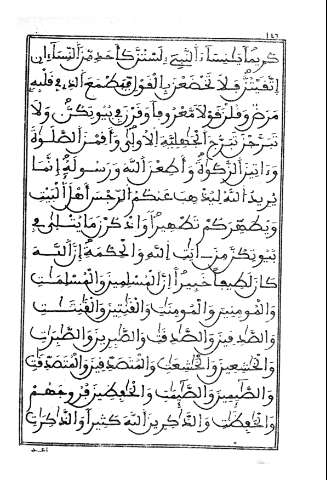 ١٤٦
كَرِيمًا يَٰنِسَآءَ ٱلنَّبِيِّ لَسْتُنَّ كَأَحَدٍ مِّنَ ٱلنِّسَآءِ انِ
ٱتَّقَيْتُنَّ فَلَا تَخْضَعْنَ بِٱلْقَوْلِ فَيَطْمَعَ ٱلَّذِي فِي قَلْبِهِ
مَرَضٌ وَقُلْنَ قَوْلًا مَّعْرُوفًا وَقَرْنَ فِي بُيُوتِكُنَّ وَلَا
تَبَرَّجْنَ تَبَرُّجَ ٱلْجَٰهِلِيَّةِ ٱلُاولَىٰ وَأَقِمْنَ ٱلصَّلَوٰةَ
وَءَاتِينَ ٱلزَّكَوٰةَ وَأَطِعْنَ ٱللَّهَ وَرَسُولَهُ إِنَّمَا
يُرِيدُ ٱللَّهُ لِيُذْهِبَ عَنكُمُ ٱلرِّجْسَ أَهْلَ ٱلْبَيْتِ
وَيُطَهِّرَكُمْ تَطْهِيرًا وَٱذْكُرْنَ مَا يُتْلَىٰ فِي
بُيُوتِكُنَّ مِنَ ايَٰتِ ٱللَّهِ وَٱلْحِكْمَةِ إِنَّ ٱللَّهَ
كَانَ لَطِيفًا خَبِيرًا إِنَّ ٱلْمُسْلِمِينَ وَٱلْمُسْلِمَٰتِ
وَٱلْمُومِنِينَ وَٱلْمُومِنَٰتِ وَٱلْقَٰنِتِينَ وَٱلْقَٰنِتَٰتِ
وَٱلصَّٰدِقِينَ وَٱلصَّٰدِقَٰتِ وَٱلصَّٰبِرِينَ وَٱلصَّٰبِرَٰتِ
وَٱلْخَٰشِعِينَ وَٱلْخَٰشِعَٰتِ وَٱلْمُتَصَدِّقِينَ وَٱلْمُتَصَدِّقَٰتِ
وَٱلصَّٰٓئِمِينَ وَٱلصَّٰٓئِمَٰتِ وَٱلْحَٰفِظِينَ فُرُوجَهُمْ
وَٱلْحَٰفِظَٰتِ وَٱلذَّٰكِرِينَ ٱللَّهَ كَثِيرًا وَٱلذَّٰكِرَٰتِ
اعد